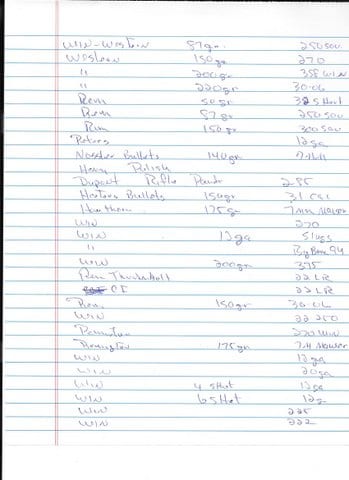 WIN-Western 87gr. 250 Sav.
Western 150gr 270
" 200gr 358 WIN
" 220gr 30-06
Rem 50gr 32 Short
Rem 87gr 250 Sav
Rem 150gr 300 Sav
Peters 12ga
Nossler Bullets 140gr 7MM
Heavy
Dupont Rifle Powder 285
Hortons Bullets 150gr 31 cal
Hawthorn 175gr 7MM Mauser
WIN 270
WIN 12ga Slugs
" Big Bore 94
WIN 200gr 375
Rem Thunderbolt 22 LR
CCI 22 LR
Rem 150gr 30-06
WIN 22 250
Remington 270 WIN
Remington 175gr 7M Mauser
WIN 12ga
WIN 20ga
WIN 4 Shot 12ga
WIN 6 Shot 12g
WIN 225
WIN 222